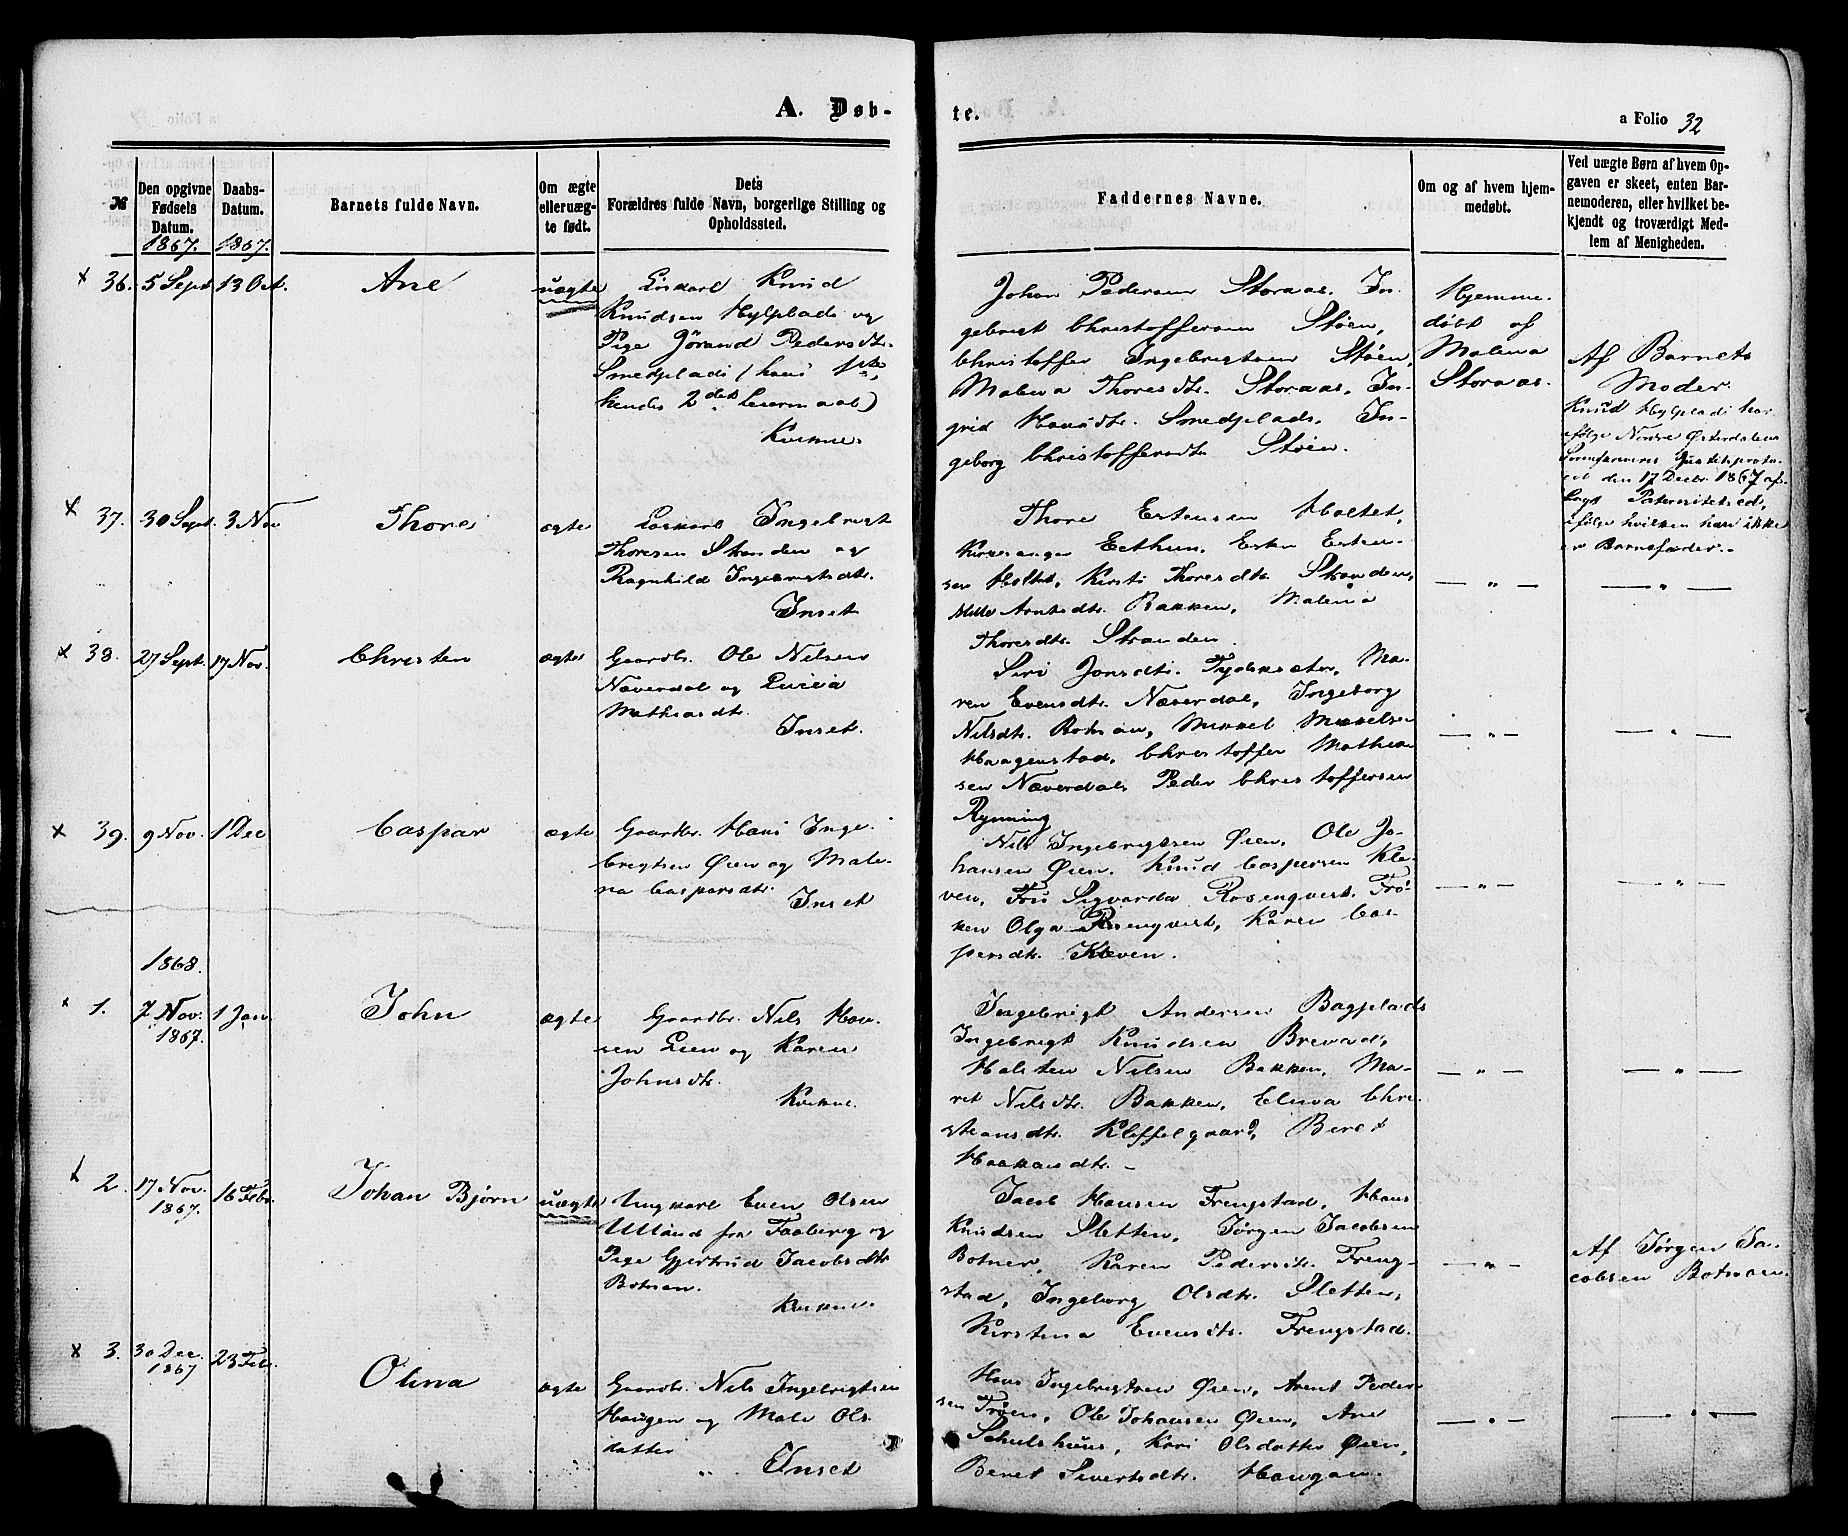 A. Døb-
te.
a Folio 32
№
Den opgivne
Fødsels
Datum.
1867.
Daabs-
Datum.
1867.
Barnets fulde Navn.
Om ægte
elleruæg-
te født.
Dets
Forældres fulde Navn, borgerlige Stilling og
Opholdssted.
Faddernes Navne.
Om og af hvem hjem-
medøbt.
Ved uægte Børn af hvem Op-
gaven er skeet, enten Bar-
nemoderen, eller hvilket be-
kjendt og troværdigt Med-
lem af Menigheden.
x 36. 5 Sept 13 Oct. Ane uægte
Löskarl Knud
Knudsen Hylplads og
Pige Jörand Pedersdtr.
Smedplads (hans 1ste,
hendes 2det Leiermaal)
Kvikne
Johan Pedersen Storaas, In-
gebrigt Christoffersen Stöen,
Christoffer Ingebrigtsen Stöen,
Malena Thoresdtr. Storaas, In-
grid Hansdtr. Smedplads, In-
geborg Christoffersdtr Stöen.
Hjemme-
döbt af
Malena
Storaas.
Af Barnets
Moder.
Knud Hylplads har
ifölge Nordre Österdalens
Sorenskriveris Justitsproto-
col den 17 Decbr. 1867 af-
lagt Paternitetsed,
ifölge hvilken han ikke
er Barnefader.-
x 37. 30 Sept. 3 Nov Thore ægte
Löskarl Ingebrigt
Thoresen Stranden og
Ragnhild Ingebrigtsdtr.
Inset
Thore Estensen Holtet,
Kirkesanger Eethun, Esten Esten-
sen Holtet, Kirsti Thoresdtr. Stranden,
Mille Arntsdtr. Bakken, Malena
Thoresdtr. Stranden.
— „ —
— „ —
x 38. 27 Sept. 17 Nov. Christen ægte
Gaardbr. Ole Nilsen
Næverdal og Lucia
Mathiasdtr.
Inset.
Siri Jonsdtr. Tydsksæter, Ma-
ren Evensdtr. Næverdal, Ingeborg
Nilsdtr. Botnan, Mikkel Mikkelsen
Haagenstad, Christoffer Mathia-
sen Næverdal, Peder Christoffersen
Rynning
— „ —
— „ —
x 39. 9 Nov. 1 Dec Caspar ægte
Gaardbr. Hans Inge-
brigtsen Öien og Male-
na Caspersdtr.
Inset
Nils Ingebrigtsen Öien, Ole Jo-
hansen Öien, Knud Caspersen Kle-
ven, Fru Sigvarda Rosenqvist, Frö-
ken Olga Rosenqvist, Karen Cas-
persdtr. Kleven.
— „ —
— „ —
1868.
x 1. 7 Nov. 1867. 1 Jan John ægte
Gaardbr. Nils Han-
sen Lien og Karen
Johnsdtr.
Kvikne.
Ingebrigt Andersen Bagplads
Ingebrigt Knudsen Brevad,
Halsten Nilsen Bakken, Ma-
rit Nilsdtr. Bakken, Elina Chri-
stiansdtr. Kleffelgaard, Beret
Haakansdtr. -
— „ —
— „ —
x 2. 17 Nov. 1867. 16 Febr. Johan Bjørn uægte
Ungkarl Even Olsen
Ulland fra Faaberg og
Pige Gjertrud Jacobsdtr
Botnan.
Kvikne.
Jacob Hansen Frengstad, Hans
Knudsen Sletten, Jörgen Jacobsen
Botnen, Karen Pedersdtr. Freng-
stad, Ingeborg Olsdtr. Sletten,
Kirstina Evensdtr. Frengstad.
— „ —
Af Jörgen Ja-
cobsen Botnan.
x 3. 30 Dec. 1867 23 Feb. Olina ægte
Gaardbr. Nils Ingebrigtsen
Haugen og Mali Ols-
datter
„ Inset
Hans Ingebrigtsen Öien, Arent Peder-
sen Tröen, Ole Johansen Öien, Ane
Schulshuus, Kari Olsdatter Öien,
Beret Sivertsdtr. Haugan.
— „ —
— „ —